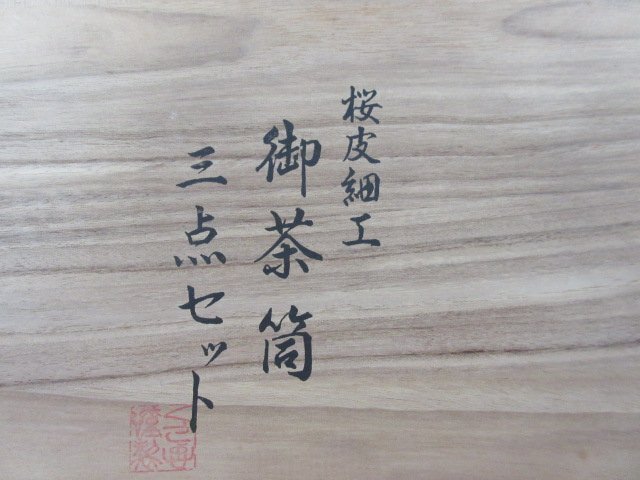 桜皮細工
御茶筒
三点セット